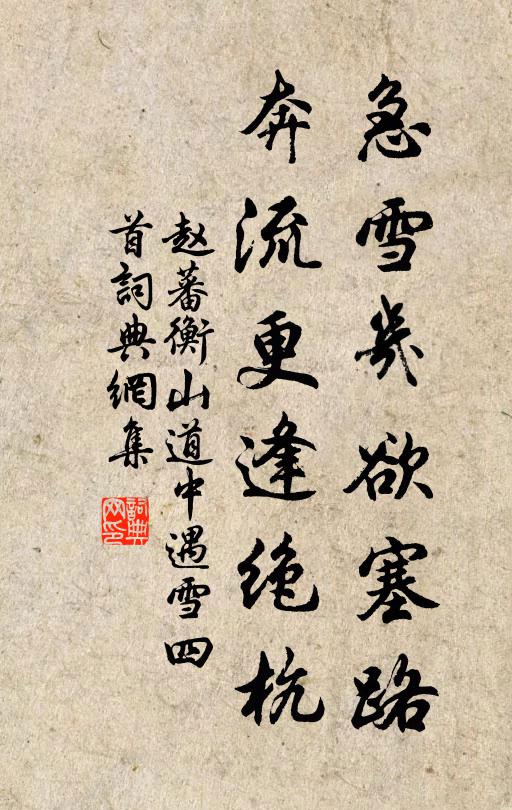 急雪幾欲塞路
奔流更逢绝杭
赵蕃衡山道中遇雪四
首詞典網集
詞典
网印